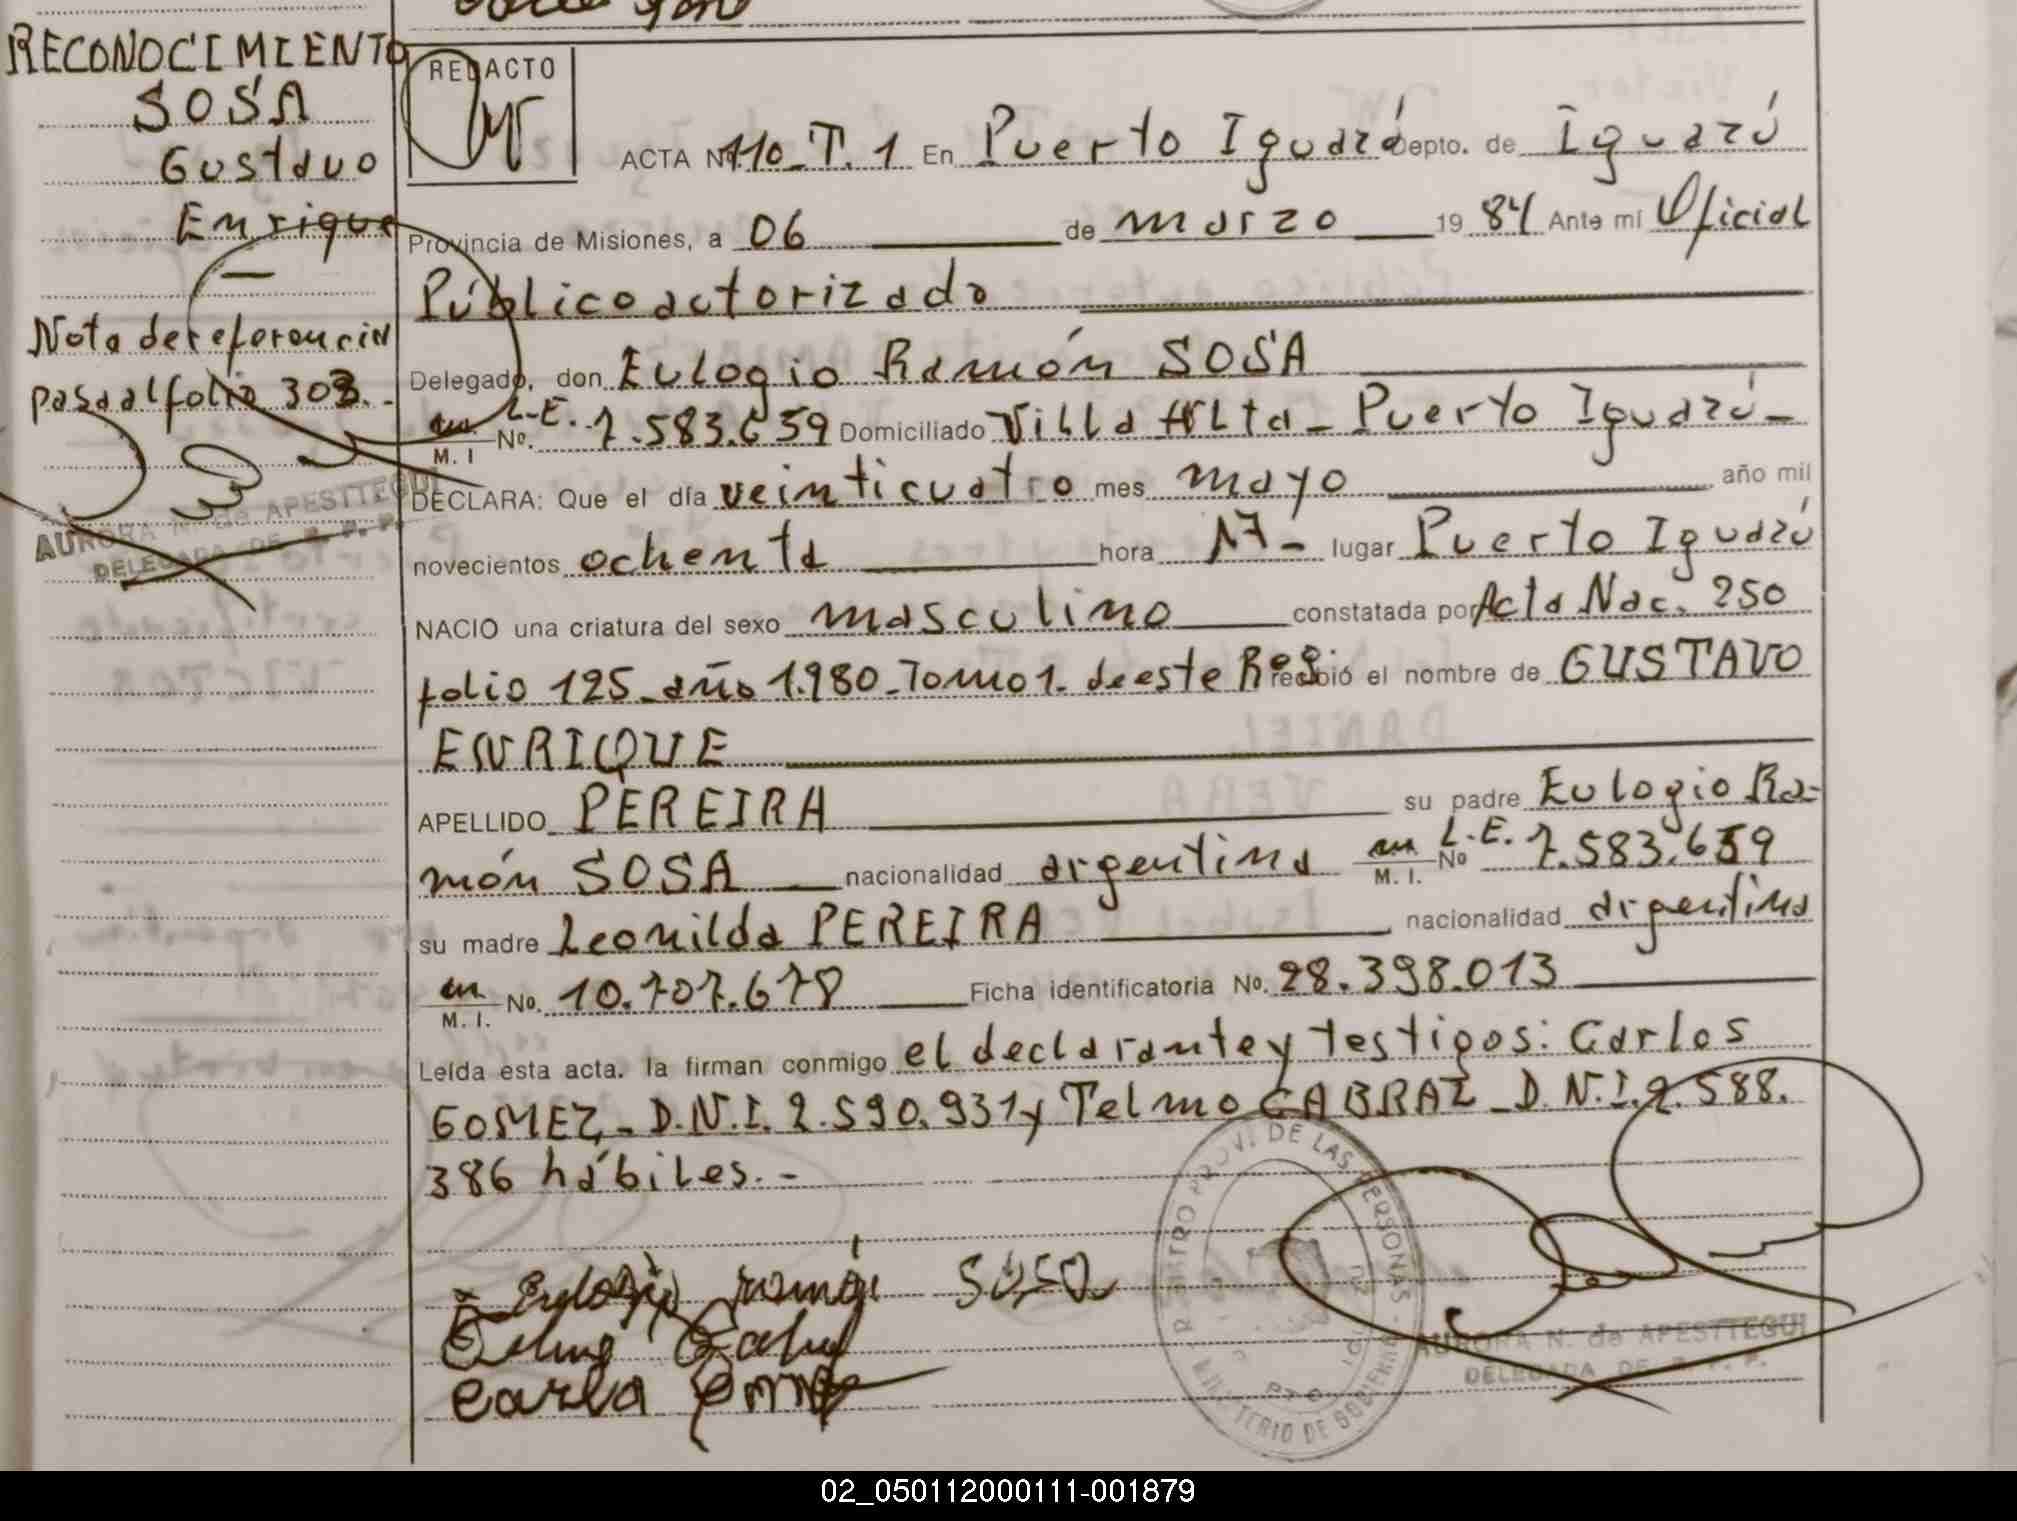 RECONOCIMIENTO
SOSA
Gustavo
Enrique
Nota de referencia
pasa al folio 303.-
AURORA N. de APESTTEGUI
DELEGADA DE R. P. P.
REDACTO
ACTA Nº 110_T. 1 En Puerto Iguazú Depto. de Iguazú
Provincia de Misiones, a 06 de marzo 19 84 Ante mi Oficial
Público actorizado
Delegado, don Eulogio Ramón SOSA
M. I Nº. L-E. 7.583.659 Domiciliado Villa Alta_ Puerto Iguazú_
DECLARA: Que el día veinticuatro mes mayo año mil
novecientos ochenta hora 17- lugar Puerto Iguazú
NACIO una criatura del sexo masculino constatada por Acta Nac. 250
folio 125_año 1.980_Tomo 1. de este Reg. recibió el nombre de GUSTAVO
ENRIQUE
APELLIDO PEREIRA su padre Eulogio Ra-
món SOSA nacionalidad argentina M. I. Nº L-E. 7.583.659
su madre Leonilda PEREIRA nacionalidad argentina
M. I. Nº. 10.707.678 Ficha identificatoria Nº. 28.398.013
Leída esta acta. la firman conmigo el declarante y testigos: Carlos
GOMEZ_ D.N.I. 2.590.931 y Telmo CABRAL_ D.N.I. 2.588.
386 hábiles.-
Eulogio ramón SOSA
AURORA N. de APESTTEGUI
DELEGADA DE R. P. P.
02_050112000111-001879